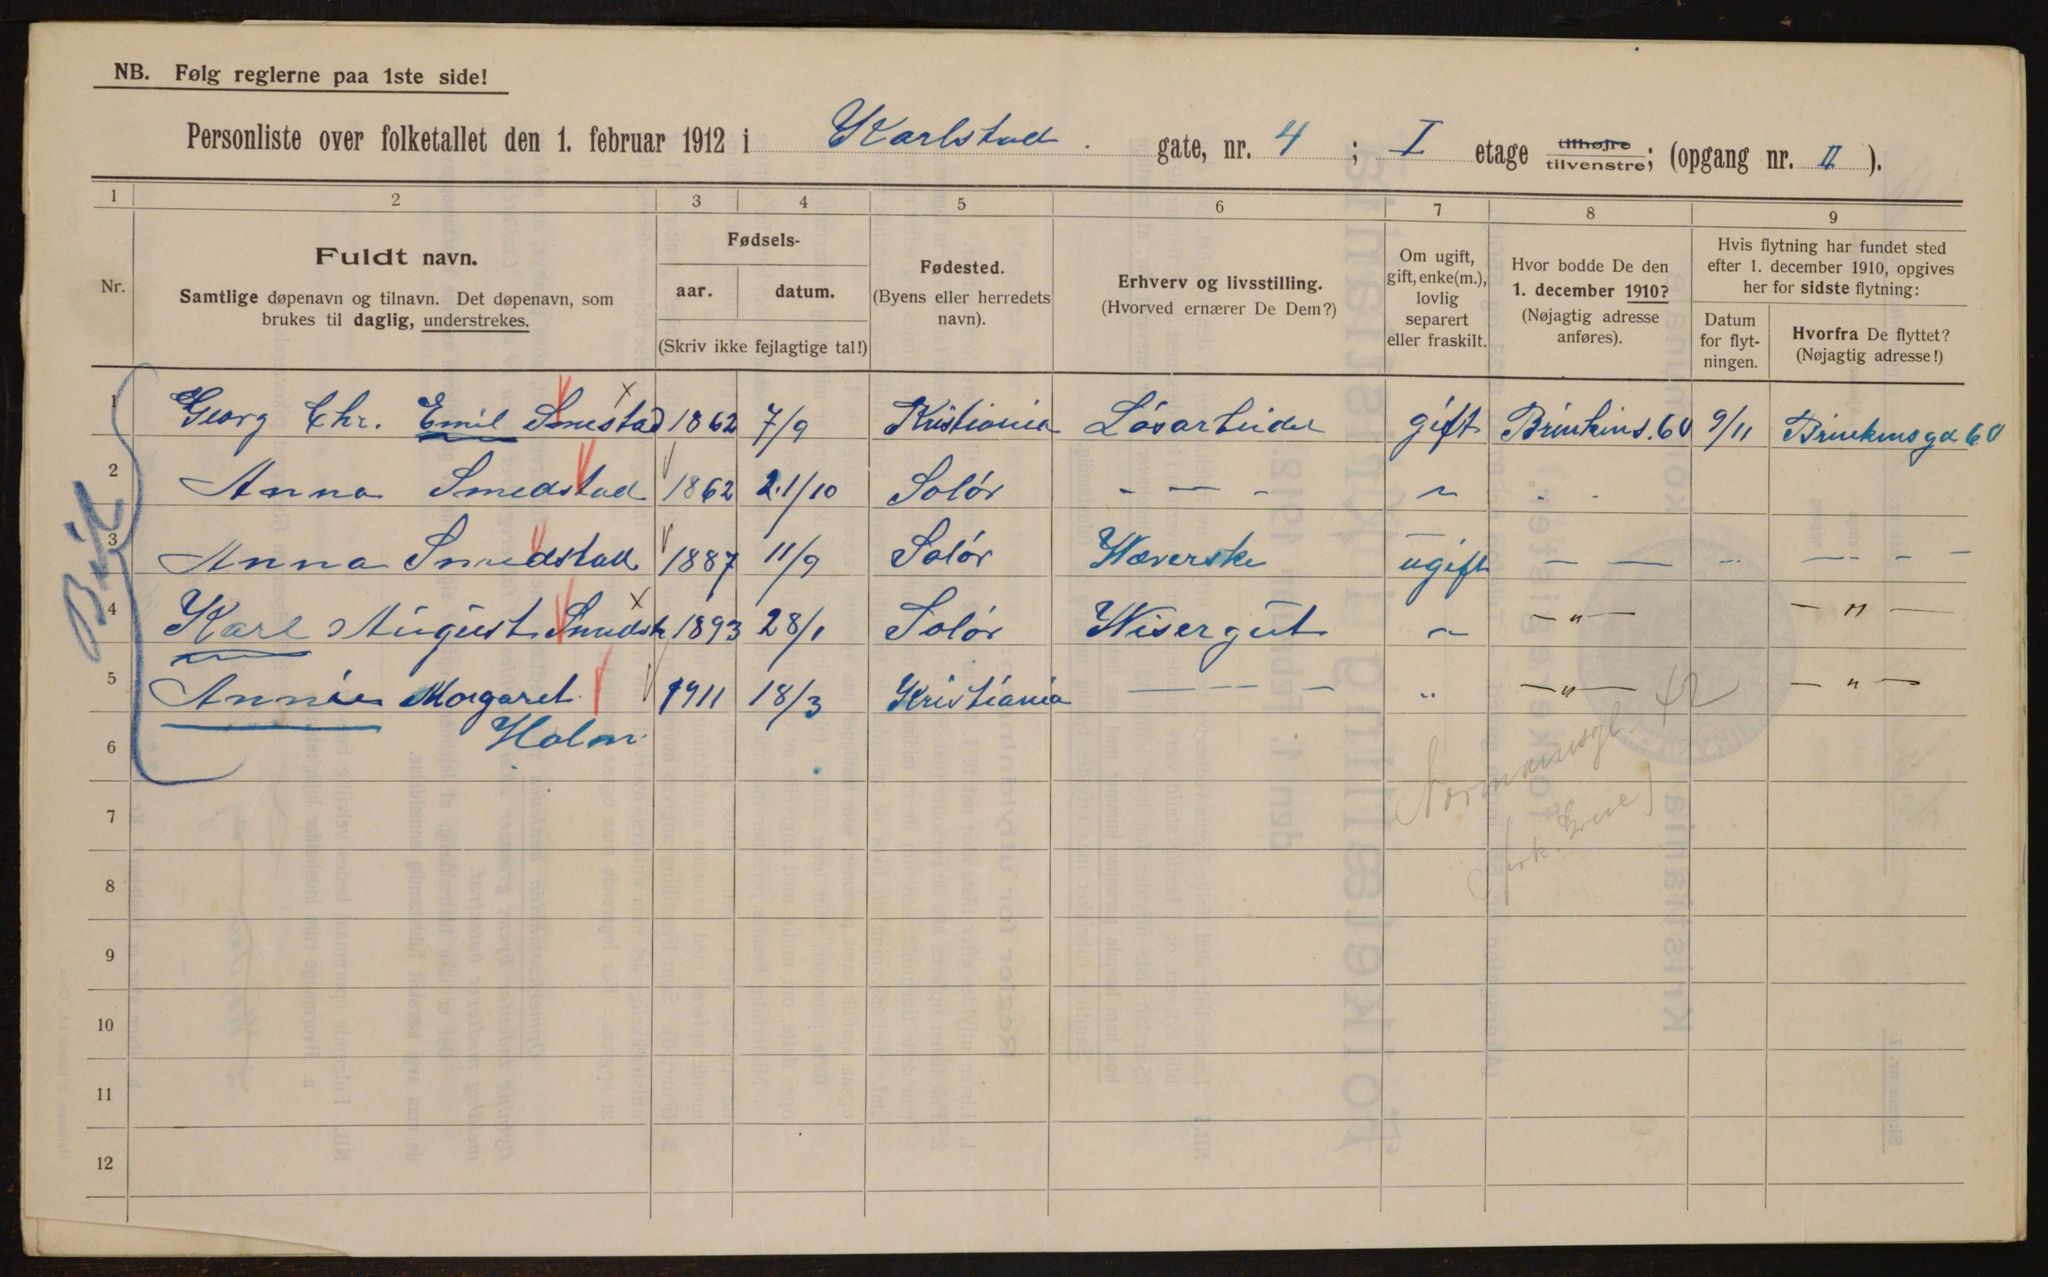 NB. Følg reglerne paa 1ste side!
Personliste over folketallet den 1. februar 1912 i Karlstad gate, nr. 4 ; I etage tilhøjre tilvenstre; (opgang nr. II ).
1 2 3 4 5 6 7 8 9
Nr.
Fuldt navn.
Samtlige døpenavn og tilnavn. Det døpenavn, som
brukes til daglig, understrekes.
Fødsels-
aar. datum.
(Skriv ikke fejlagtige tal!)
Fødested.
(Byens eller herredets
navn).
Erhverv og livsstilling.
(Hvorved ernærer De Dem?)
Om ugift,
gift, enke(m.),
lovlig
separert
eller fraskilt.
Hvor bodde De den
1. december 1910?
(Nøjagtig adresse
anføres).
Hvis flytning har fundet sted
efter 1. december 1910, opgives
her for sidste flytning:
Datum
for flyt-
ningen.
Hvorfra De flyttet?
(Nøjagtig adresse!)
1 Georg Chr. Emil Smestad 1862 7/9 Kristiania Løsarbeider gift Brinkens. 60 9/11 Brinkensgd 60
2 Anna Smedstad 1862 21/10 Solør - — - " . .
3 Anna Smedstad 1887 11/9 Solør Væverske ugift — — - — - -
4 Karl August Smedst 1893 28/1 Solør Visergut " — " — — " —
5 Annie Margaret 1911 18/3 Kristiania — - - - " — " — — " —
6 Holm
7
8
9
10
11
12
Normannsgt. 42